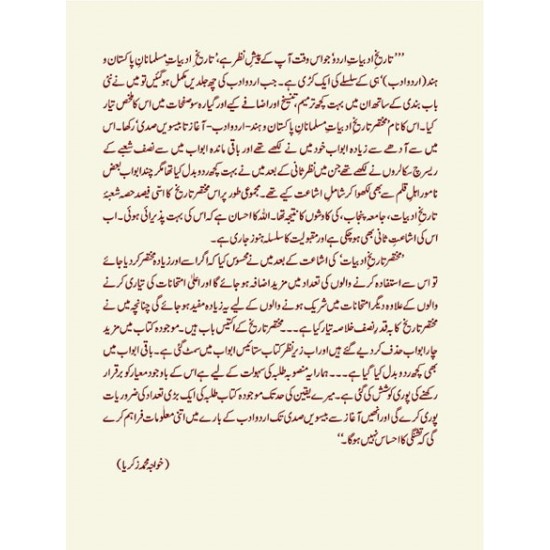 ’’’تاریخ ادبیاتِ اردو‘ جو اس وقت آپ کے پیشِ نظر ہے، ’تاریخِ ادبیاتِ مسلمانانِ پاکستان و
ہند (اردو ادب)‘ ہی کے سلسلے کی ایک کڑی ہے۔ جب اردو ادب کی چھ جلدیں مکمل ہو گئیں تو میں نے نئی
باب بندی کے ساتھ ان میں بہت کچھ ترمیم، تنسیخ اور اضافے کیے اور گیارہ سو صفحات میں اس کا ملخص تیار
کیا۔ اس کا نام ’مختصر تاریخِ ادبیاتِ مسلمانانِ پاکستان و ہند-اردو ادب- آغاز تا بیسویں صدی‘ رکھا۔ اس
میں سے آدھے سے زیادہ ابواب خود میں نے لکھے تھے اور باقی ماندہ ابواب میں سے نصف شعبے کے
ریسرچ سکالروں نے لکھے تھے جن میں نظر ثانی کے بعد میں نے بہت کچھ ردو بدل کیا تھا مگر چند ابواب بعض
نامور اہلِ قلم سے بھی لکھوا کر شاملِ اشاعت کیے تھے۔ مجموعی طور پر اس مختصر تاریخ کا اسّی فیصد حصہ شعبۂ
تاریخِ ادبیات، جامعہ پنجاب، کی کاوشوں کا نتیجہ تھا۔ اللہ کا احسان ہے کہ اس کی بہت پذیرائی ہوئی۔ اب
اس کی اشاعتِ ثانی بھی ہو چکی ہے اور مقبولیت کا سلسلہ ہنوز جاری ہے۔
’مختصر تاریخِ ادبیات‘ کی اشاعت کے بعد میں نے محسوس کیا کہ اگر اسے اور زیادہ مختصر کر دیا جائے
تو اس سے استفادہ کرنے والوں کی تعداد میں مزید اضافہ ہو جائے گا اور اعلیٰ امتحانات کی تیاری کرنے
والوں کے علاوہ دیگر امتحانات میں شریک ہونے والوں کے لیے یہ زیادہ مفید ہو جائے گی چنانچہ میں نے
مختصر تاریخ کا بہ قدرِ نصف خلاصہ تیار کیا ہے۔۔۔ مختصر تاریخ کے اکتیس باب ہیں۔ موجودہ کتاب میں مزید
چار ابواب حذف کر دیے گئے ہیں اور اب زیرِ نظر کتاب ستائیس ابواب میں سمٹ گئی ہے۔ باقی ابواب میں
بھی کچھ ردو بدل کیا گیا ہے۔۔۔ ہمارا یہ منصوبہ طلبہ کی سہولت کے لیے ہے اس کے باوجود معیار کو برقرار
رکھنے کی پوری کوشش کی گئی ہے۔ میرے یقین کی حد تک موجودہ کتاب طلبہ کی ایک بڑی تعداد کی ضروریات
پوری کرے گی اور انھیں آغاز سے بیسویں صدی تک اردو ادب کے بارے میں اتنی معلومات فراہم کرے
گی کہ تشنگی کا احساس نہیں ہو گا۔‘‘
(خواجہ محمد زکریا)